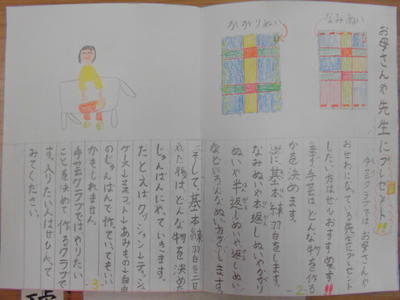 お母さんや先生にプレゼント!!
手芸クラブではお母さんや
おせわになっている先生にプレゼント
したい方はぜひおすすめです!!
まず手芸はどんな物を作る
かを決めます。
次に基本練習をします。
なみぬいや本返しぬいやかがり
ぬいや半返しぬいや返しぬい
などいろんなぬい方をします。
なみぬい
かがりぬい
2
そして、基本練習を
た物はどんな物を決め
じゅんばんにやっていきます。
たとえばクッション→ティッシュ
ケース→マスコット→あみもの→自由
のじゅんばんで作っていてもいい
かもしれません。
手芸クラブではやりたい
ことを決めて作るクラブで
す。入りたい人はぜひ入って
みてください。
3